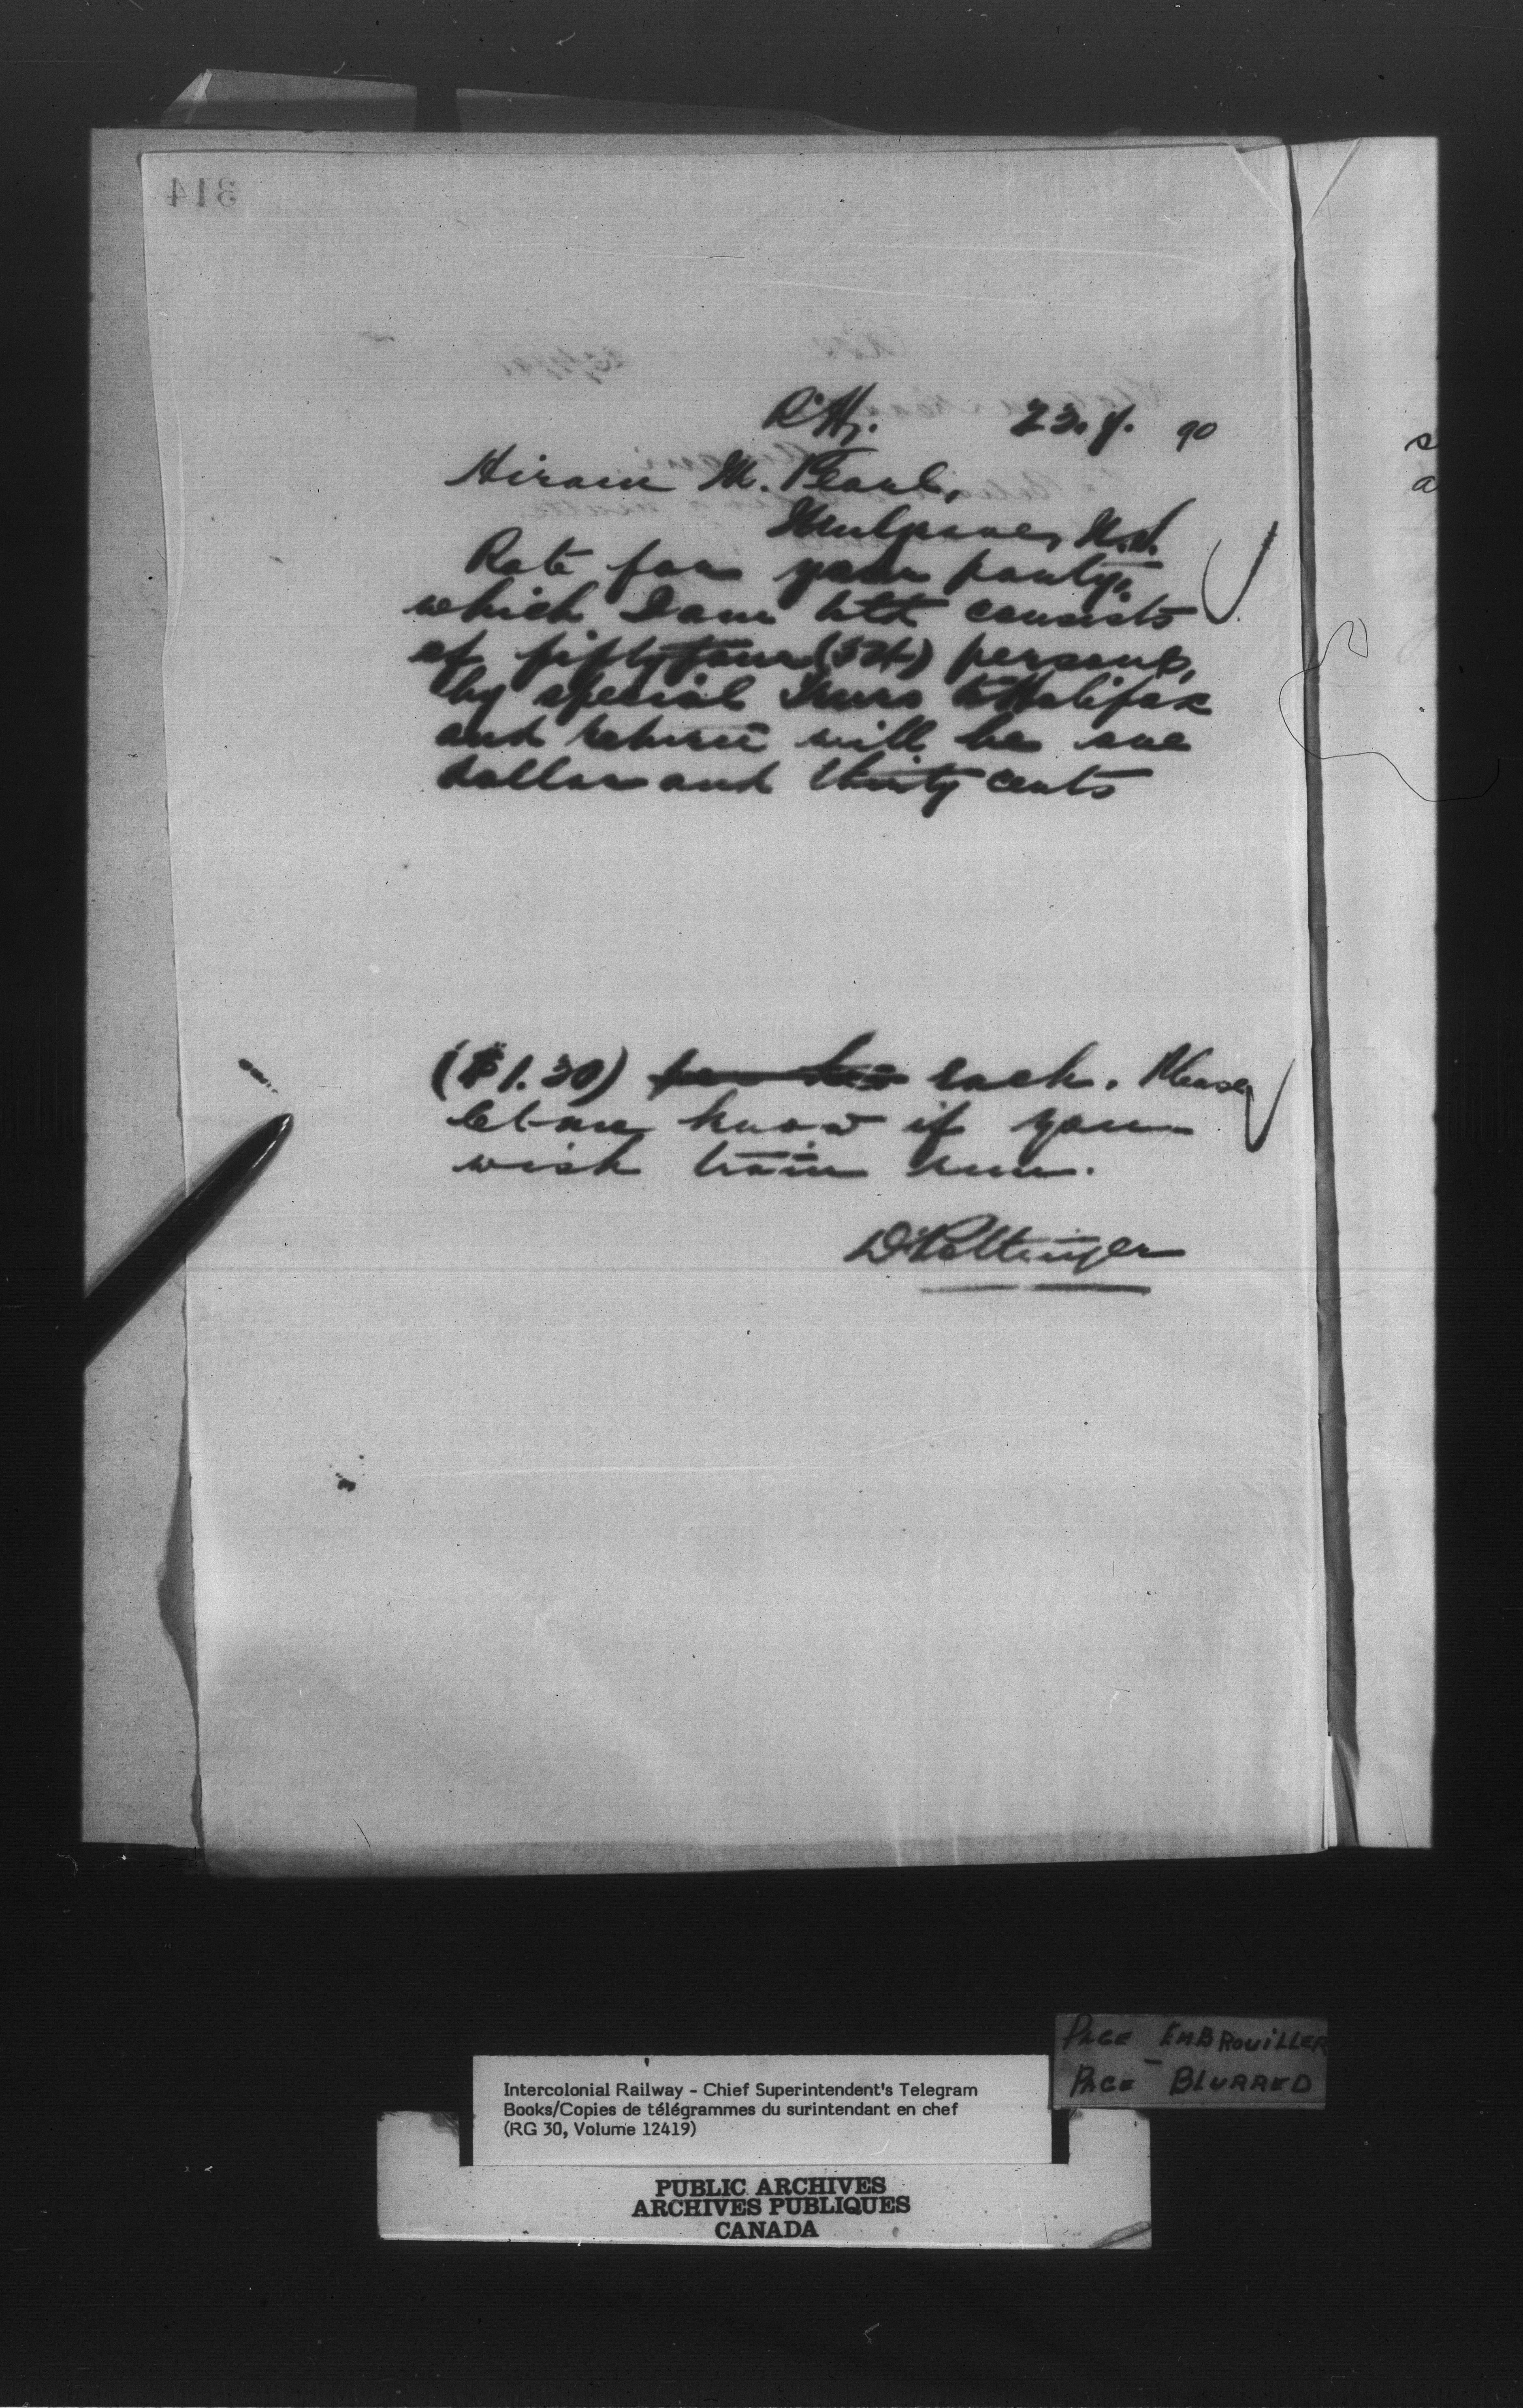 314
R'y. 23.7.90
Hiram M. Pearl,
Mulgrave, N.S.
Rate for your party,
which I am told consists
of fifty four (54) persons,
by special train to Halifax
and return will be one
dollar and thirty cents
($1.30) each. Please
let me know if you
wish train run.
D Pottinger
PAGE EMBROUILLER
PAGE BLURRED
Intercolonial Railway - Chief Superintendent's Telegram
Books/Copies de télégrammes du surintendant en chef
(RG 30, Volume 12419)
PUBLIC ARCHIVES
ARCHIVES PUBLIQUES
CANADA